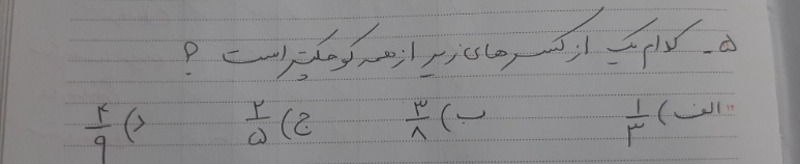 ۵- کدام یک از کسرهای زیر از همه کوچکتر است ؟
الف) ۱/۳ ب) ۳/۸ ج) ۲/۵ د) ۴/۹